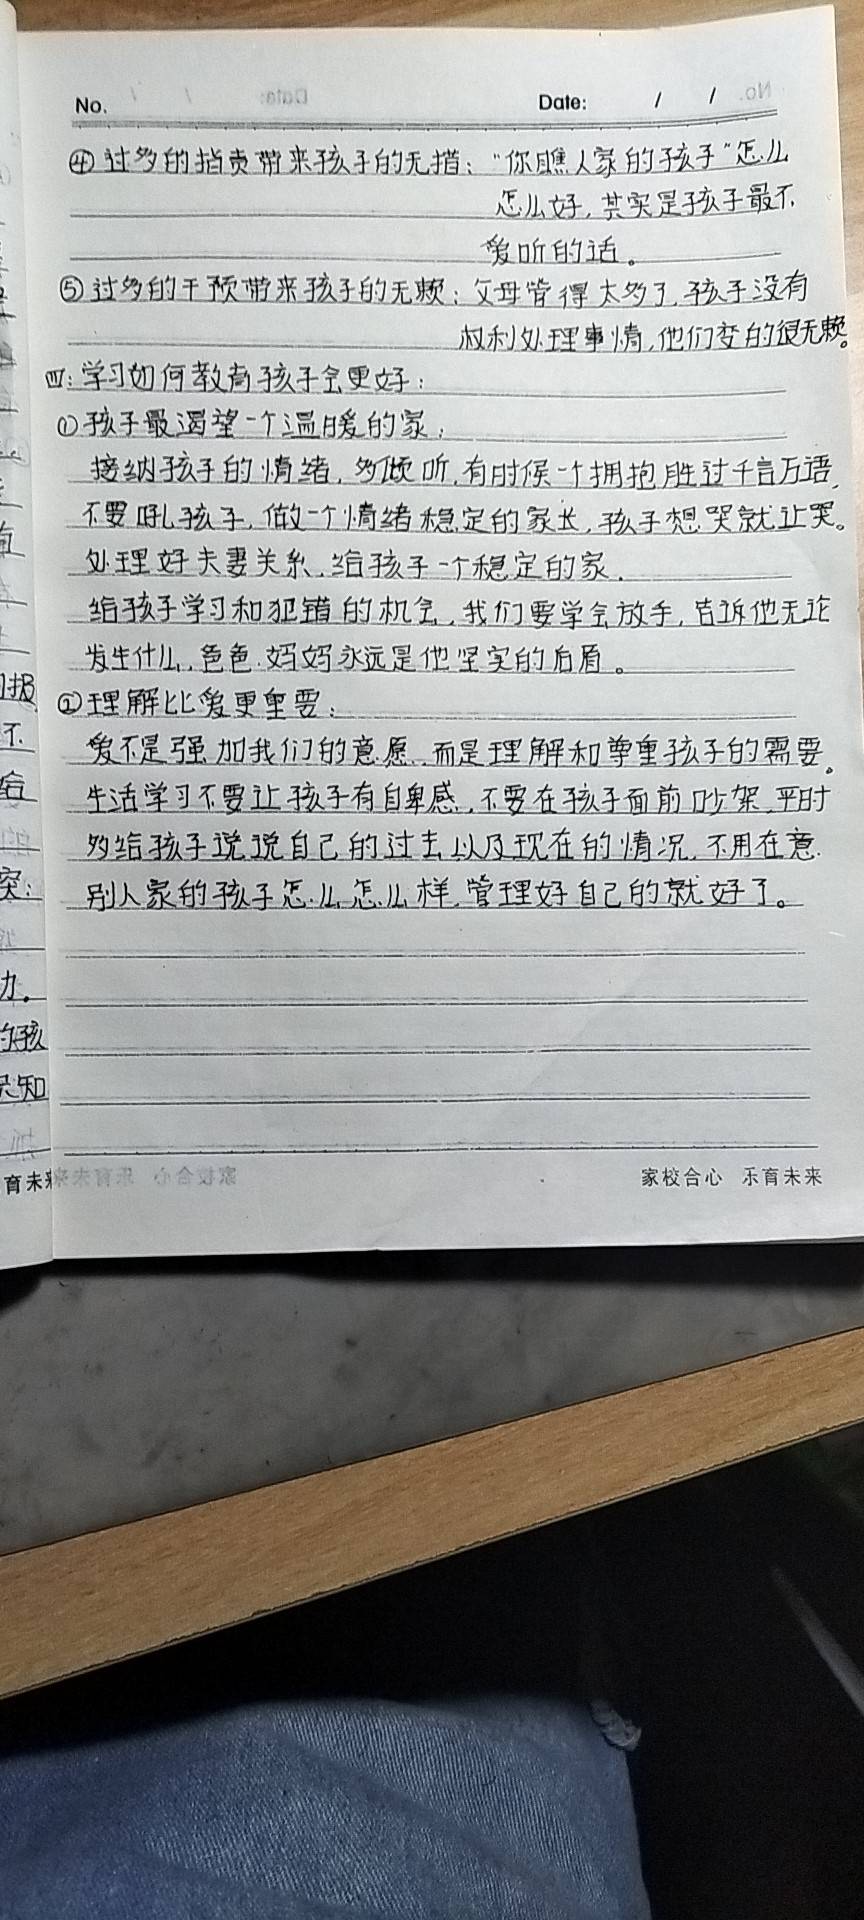 No.
Date: / /
④过多的指责带来孩子的无措："你瞧人家的孩子"怎么
怎么好,其实是孩子最不
爱听的话。
⑤过多的干预带来孩子的无赖：父母管得太多了,孩子没有
权利处理事情,他们变的很无赖。
四:学习如何教育孩子会更好：
①孩子最渴望一个温暖的家：
接纳孩子的情绪,多倾听,有时候一个拥抱胜过千言万语,
不要吼孩子,做一个情绪稳定的家长,孩子想哭就让哭。
处理好夫妻关系,给孩子一个稳定的家.
给孩子学习和犯错的机会,我们要学会放手,告诉他无论
发生什么,爸爸.妈妈永远是他坚实的后盾。
②理解比爱更重要：
爱不是强加我们的意愿,而是理解和尊重孩子的需要。
生活学习不要让孩子有自卑感,不要在孩子面前吵架,平时
多给孩子说说自己的过去以及现在的情况,不用在意
别人家的孩子怎么怎么样,管理好自己的就好了。
家校合心 乐育未来
不
给
突:
力。
的孩
知
育未来